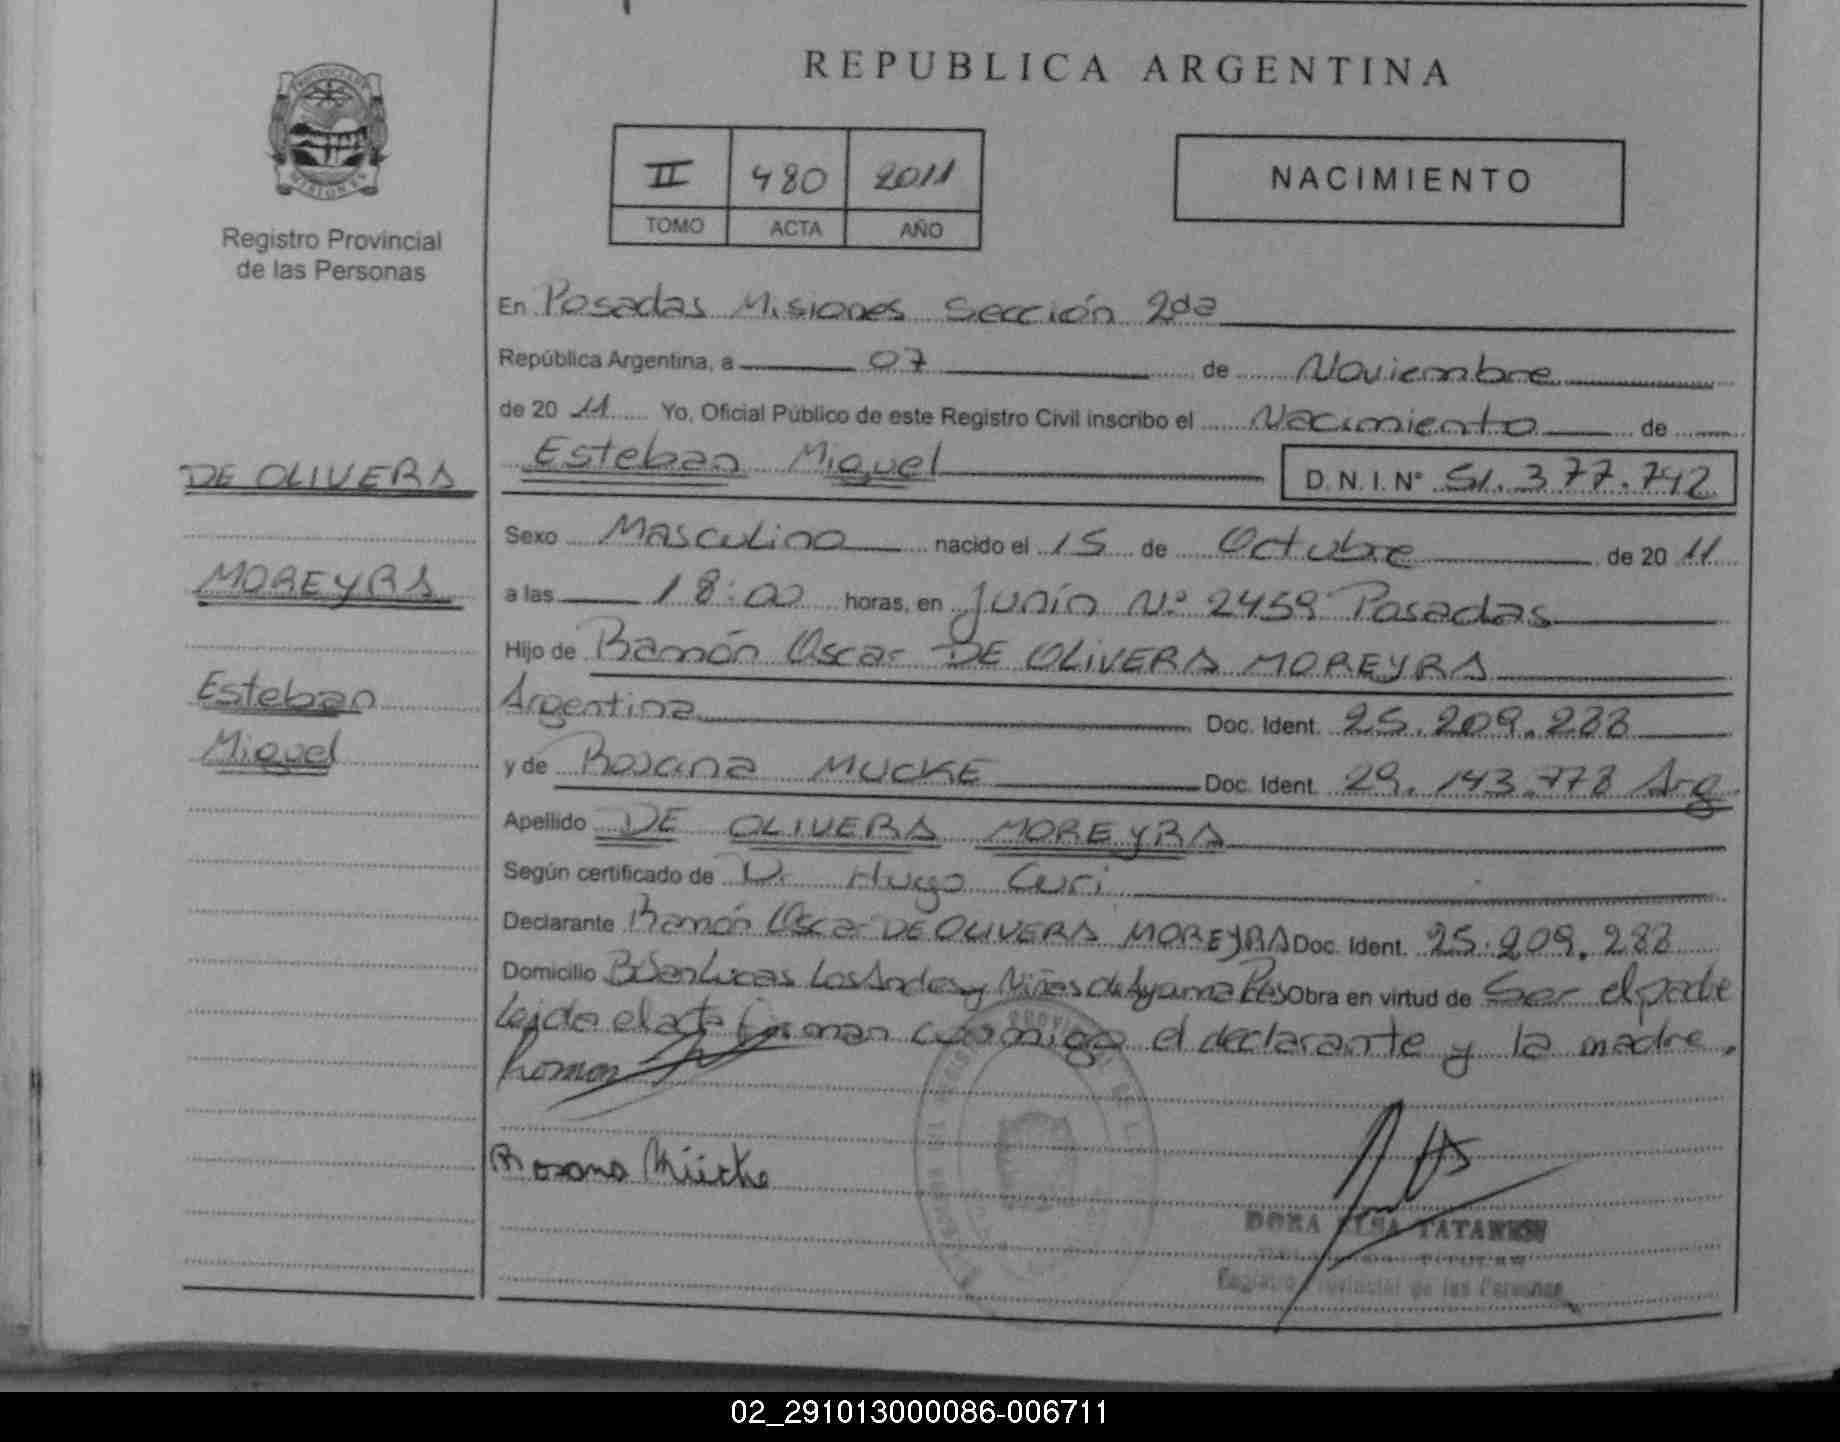 REPUBLICA ARGENTINA
PROVINCIA DE
MISIONES
Registro Provincial
de las Personas
II 480 2011
TOMO ACTA AÑO
NACIMIENTO
DE OLIVERA
MOREYRA
Esteban
Miguel
En Posadas Misiones Sección 2da
República Argentina, a 07 de Noviembre
de 20 11 Yo, Oficial Público de este Registro Civil inscribo el Nacimiento de
Esteban Miguel D.N.I. Nº 51.377.742
Sexo Masculino nacido el 15 de Octubre de 20 11
a las 18:00 horas, en Junín Nº 2459 Posadas
Hijo de Ramón Oscar DE OLIVERA MOREYRA
Argentina Doc. Ident. 25.209.288
y de Rosana MUCKE Doc. Ident. 29.143.778 Arg
Apellido DE OLIVERA MOREYRA
Según certificado de Dr Hugo Curi
Declarante Ramón Oscar DE OLIVERA MOREYRA Doc. Ident. 25.209.288
Domicilio Bº San Lucas Los Andes y Niñas de Ayohuma Pdas Obra en virtud de Ser el padre
Leida el acta firman conmigo el declarante y la madre.
Rosana Mücke
DORA ELSA TATAREN
Registro Provincial de las Personas
02_291013000086-006711